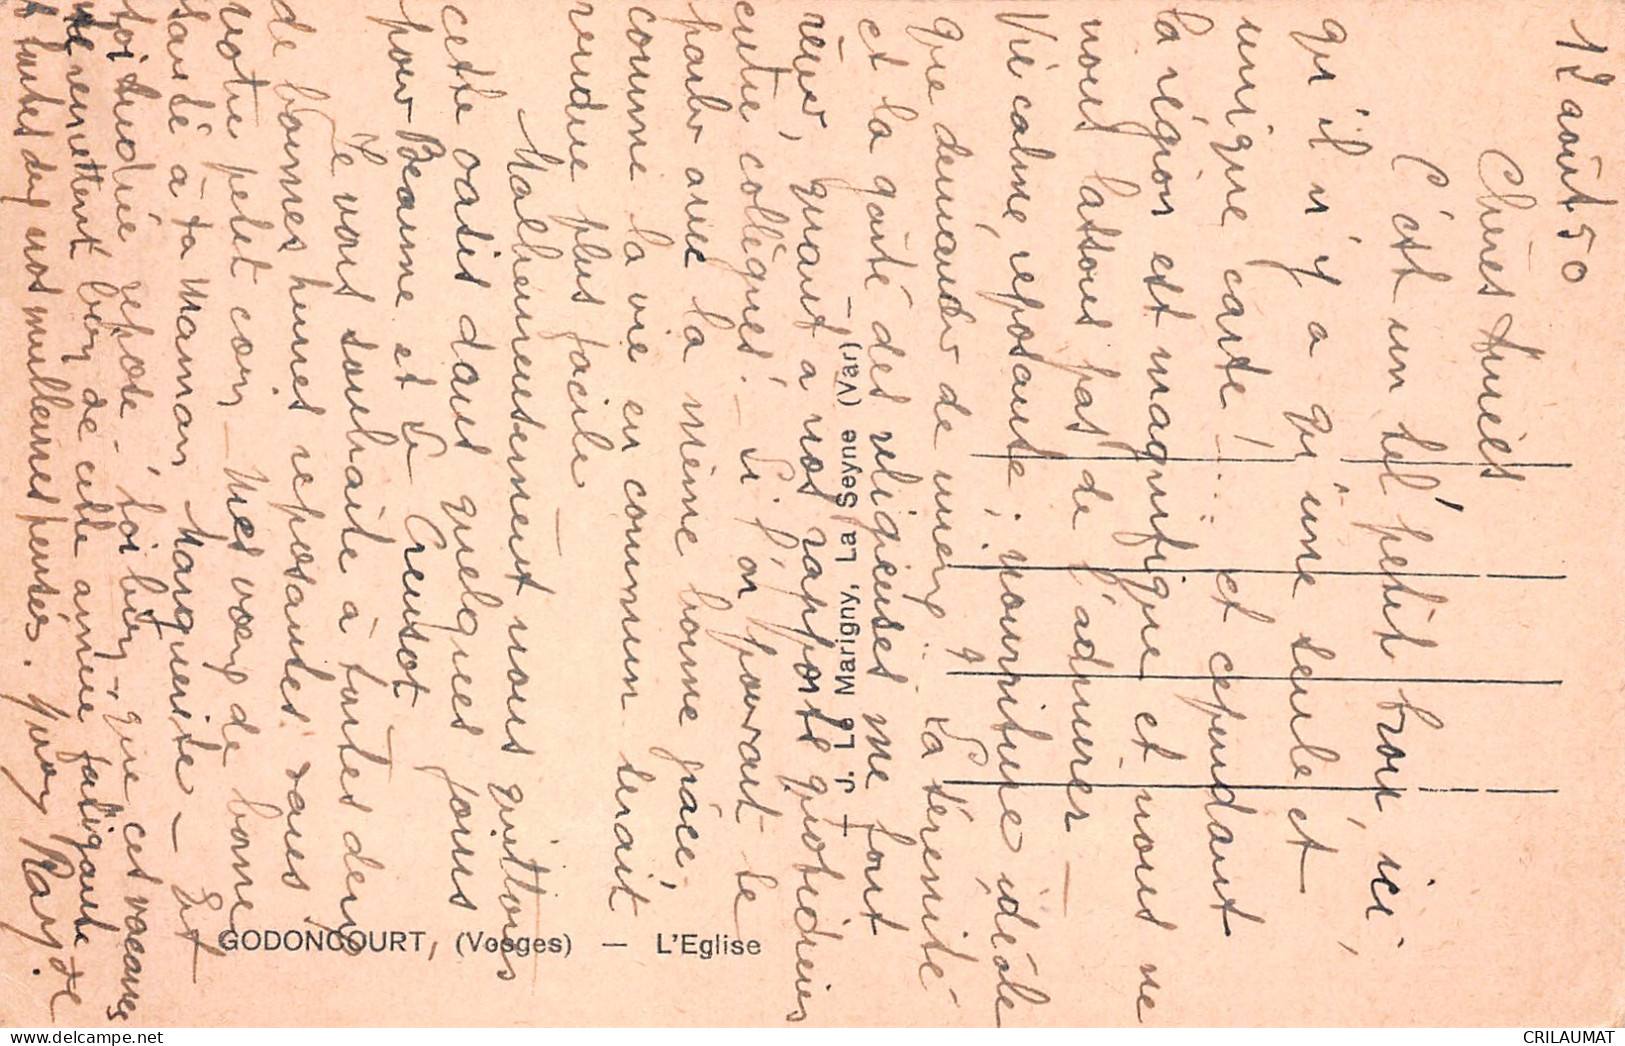 12 août 50
Chères Amies
C'est un tel petit trou, ici,
qu'il n'y a qu'une seule et
unique carte!... et cependant
la région est magnifique et nous ne
nous lassons pas de l'admirer -
Vie calme, reposante; nourriture idéale
que demander de mieux.. La sérénité
et la gaité des religieuses me font
rêver, quant a nos rapports quotidiens
entre collègues! - Si l'on pouvait se
parler avec la même bonne grâce,
comme la vie en commun serait
rendue plus facile -
Malheureusement nous quittons
cette oasis dans quelques jours
pour Beaune et Le Creusot
Je vous souhaite à toutes deux
de bonnes heures reposantes dans
votre petit coin - Mes vœux de bonne
santé à ta Maman Marguerite - Et
toi Andrée repose-toi bien, que ces vacances
te remettent bien de cette année fatigante
A toutes deux nos meilleures pensées.
J. Le Marigny, La Seyne (Var) —
GODONCOURT, (Vosges) — L'Eglise
CRILAUMAT